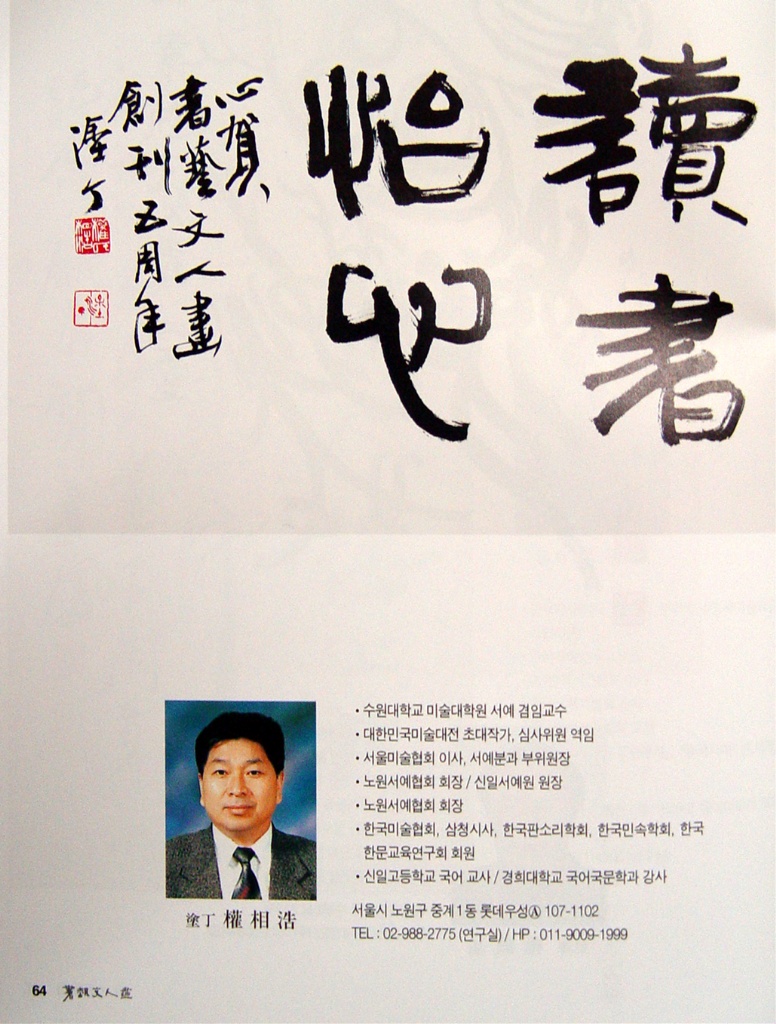 讀書
怡心
心賀
書藝文人畫
創刊五周年
塗丁
• 수원대학교 미술대학원 서예 겸임교수
• 대한민국미술대전 초대작가, 심사위원 역임
• 서울미술협회 이사, 서예분과 부위원장
• 노원서예협회 회장 / 신일서예원 원장
• 노원서예협회 회장
• 한국미술협회, 삼청시사, 한국판소리학회, 한국민속학회, 한국
한문교육연구회 회원
• 신일고등학교 국어 교사 / 경희대학교 국어국문학과 강사
塗丁 權相浩
서울시 노원구 중계1동 롯데우성Ⓐ 107-1102
TEL : 02-988-2775 (연구실) / HP : 011-9009-1999
64 書藝文人畫